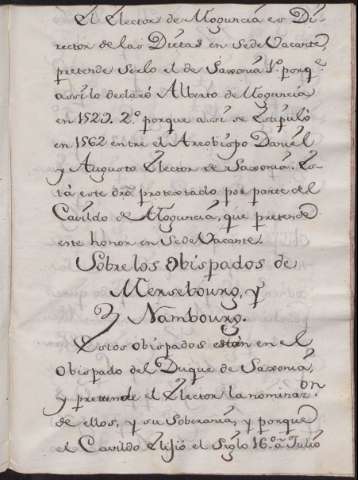 El Elector de Moguncia es Di-
rector de las Dietas en Sede Vacante,
pretende serlo el de Saxonia 1º porq.e
assi lo declaró Alberto de Moguncia
en 1529. 2º porque assi se Estipuló
en 1562 entre el Arzobispo Daniel
y Augusto Elector de Saxonia. Es-
tá este dro. protextado por parte del
Cavildo de Moguncia, que pretende
este honor en Sede Vacante.
Sobre los Obispados de
Mersebourg, y
Nambourg.
Estos Obispados están en el
Obispado del Duque de Saxonia,
y pretende el Elector la nominaz.on
de ellos, y su Soberanía, y porque
el Cavildo Elijió el Siglo 16º a Julio